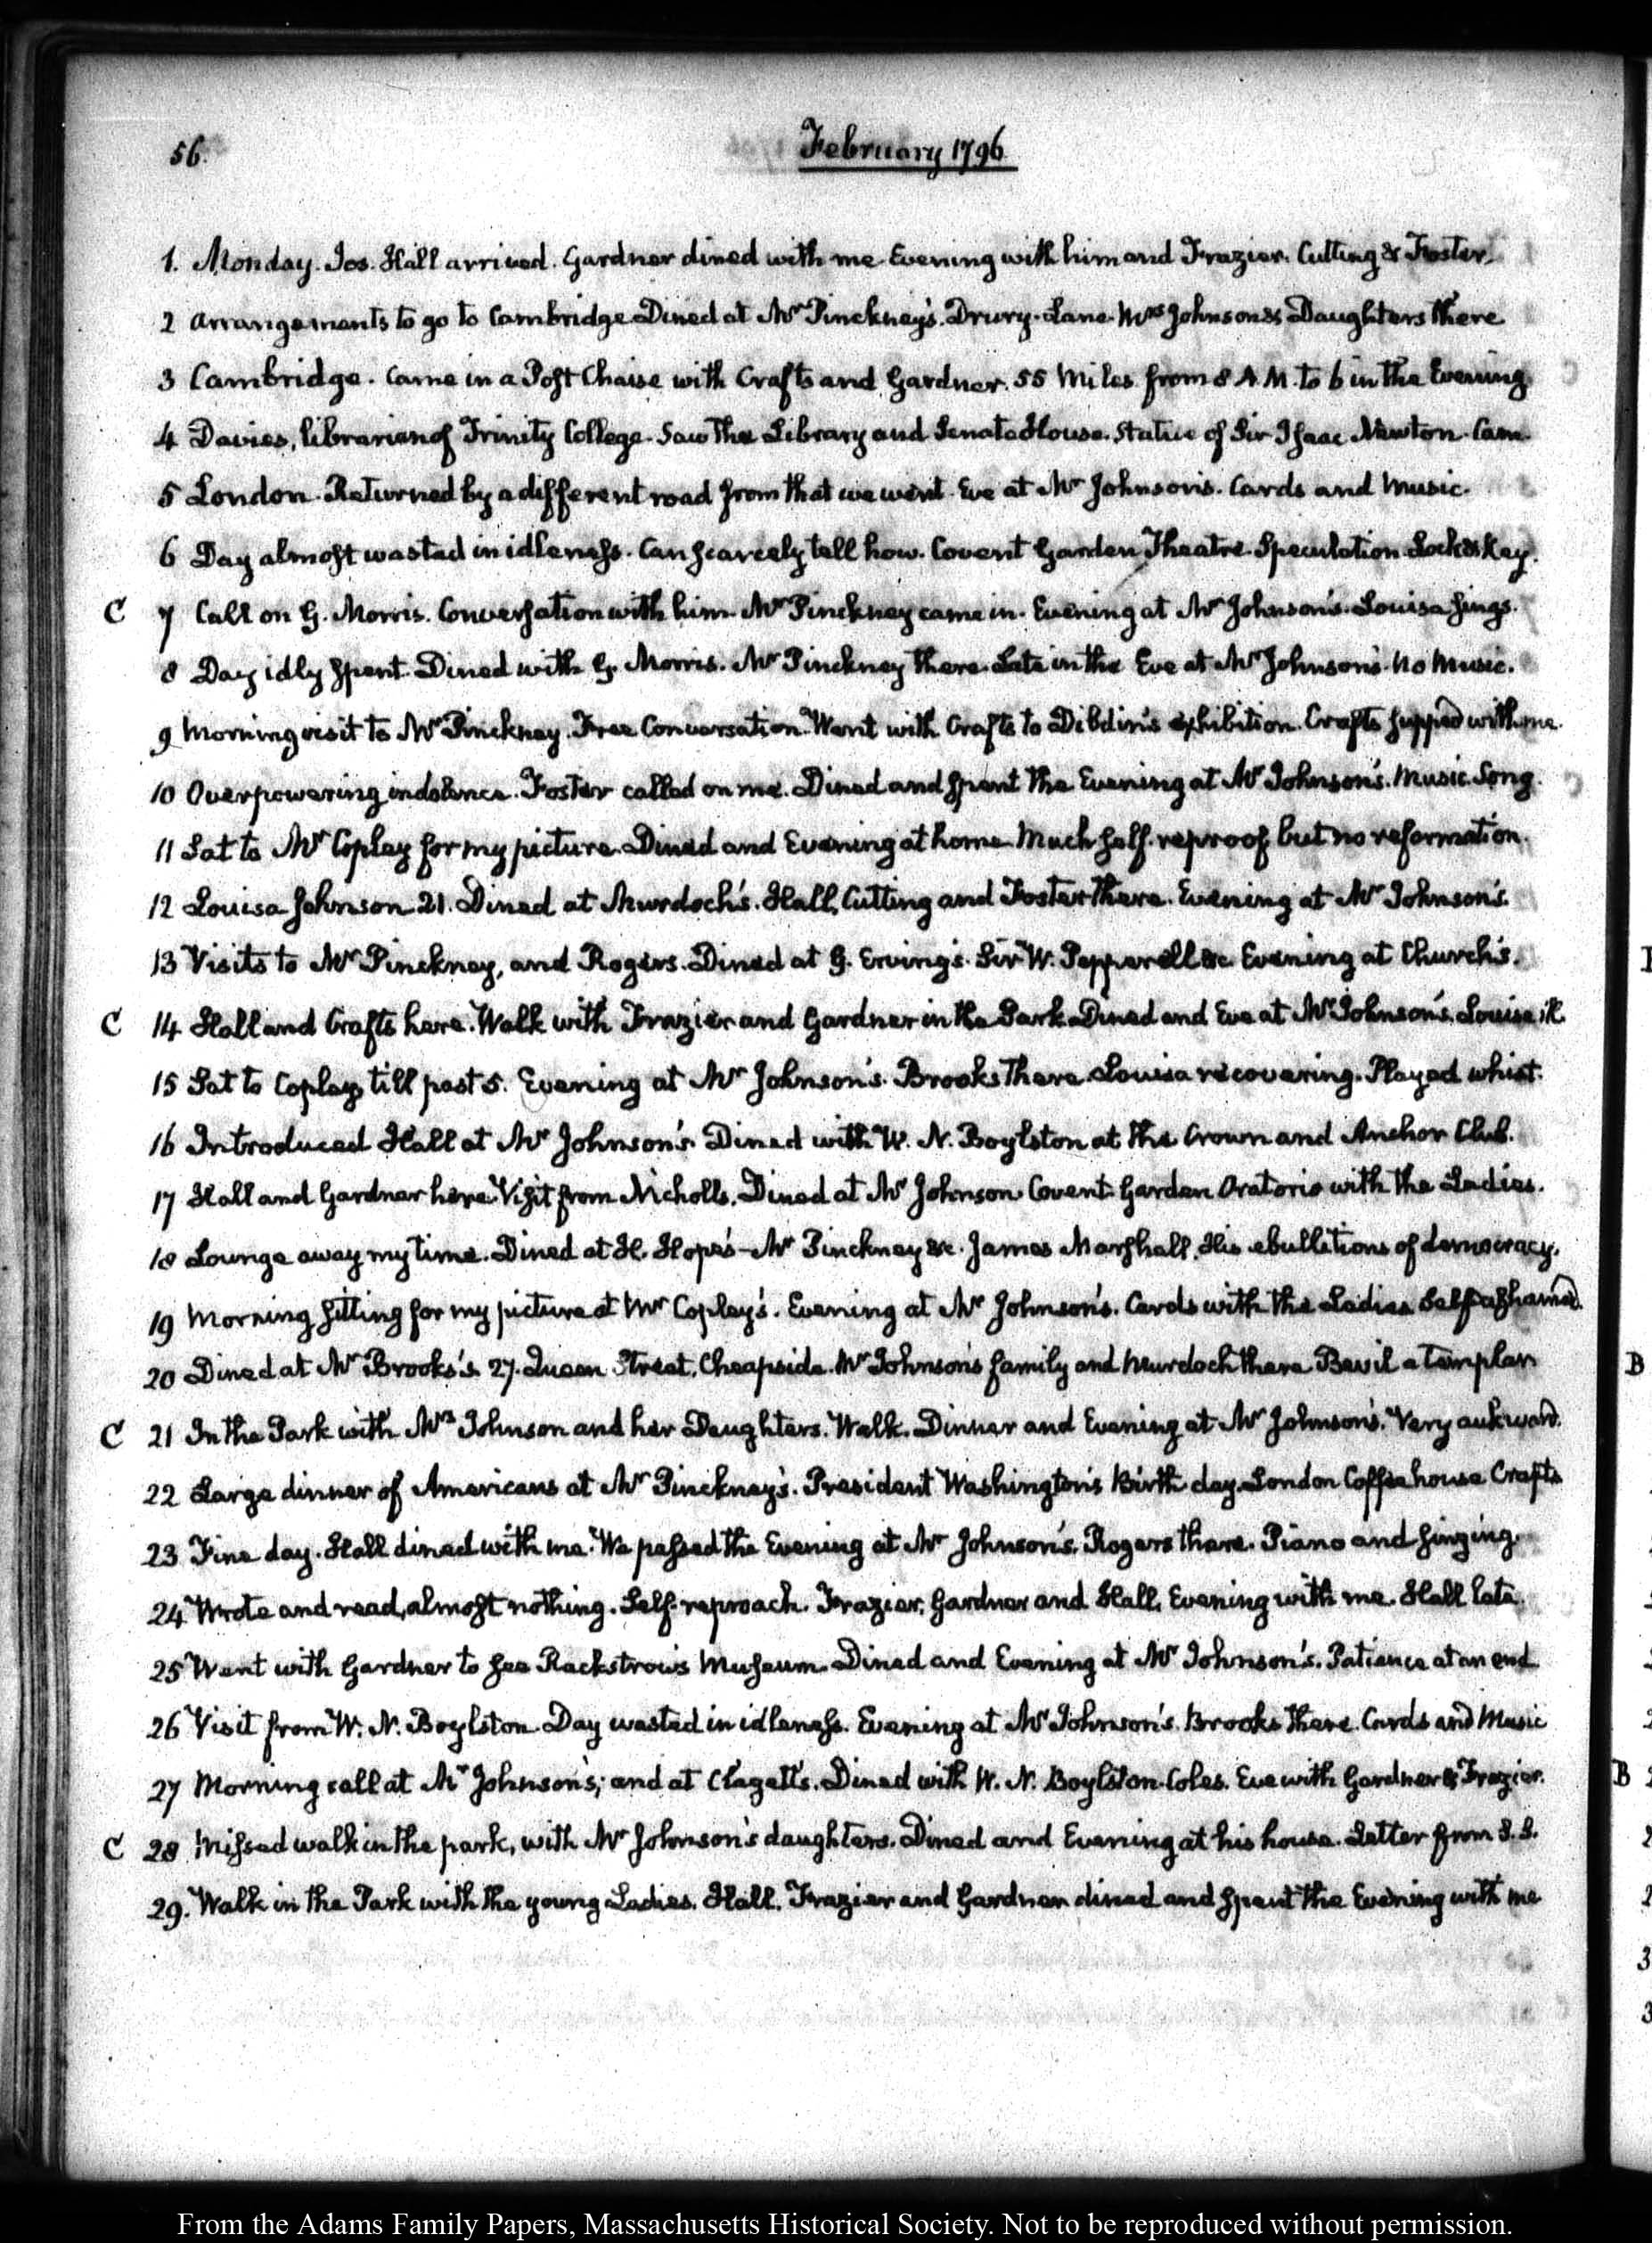 56.
February 1796
1. Monday. Jos. Hall arrived. Gardner dined with me Evening with him and Frazier. Cutling & Foster.
2 Arrangements to go to Cambridge. Dined at Mr Pinckney's. Drury-Lane. Mrs Johnson & Daughters there
3 Cambridge. Came in a Post Chaise with Crafts and Gardner. 55 Miles from 8 A.M. to 6 in the Evening.
4 Davies, librarian of Trinity College. Saw the Library and Senate House. Statue of Sir Isaac Newton. Cam.
5 London. Returned by a different road from that we went. Eve at Mr Johnson's. Cards and Music.
6 Day almost wasted in idleness. Can scarcely tell how. Covent Garden Theatre. Speculation. Lock & Key.
C 7 Call on G. Morris. Conversation with him. Mr Pinckney came in. Evening at Mr Johnson's. Louisa sings.
8 Day idly spent. Dined with G. Morris. Mr Pinckney there. Late in the Eve at Mr Johnson's. No Music.
9 Morning visit to Mr Pinckney. Free Conversation. Went with Crafts to Dibdin's exhibition. Crafts supped with me.
10 Overpowering indolence. Foster called on me. Dined and spent the Evening at Mr Johnson's. Music. Song.
11 Sat to Mr Copley for my picture. Dined and Evening at home. Much self-reproof, but no reformation.
12 Louisa Johnson 21. Dined at Murdoch's. Hall, Cutting and Foster there. Evening at Mr Johnson's.
13 Visits to Mr Pinckney, and Rogers. Dined at G. Erving's. Sir W. Pepperell &c. Evening at Church's.
C 14 Hall and Crafts here. Walk with Frazier and Gardner in the Park. Dined and Eve at Mr Johnson's. Louisa ill.
15 Sat to Copley till past 5. Evening at Mr Johnson's. Brooks there. Louisa recovering. Played whist.
16 Introduced Hall at Mr Johnson's. Dined with W. N. Boylston at the Crown and Anchor Club.
17 Hall and Gardner here. Visit from Nicholls. Dined at Mr Johnson. Covent-Garden Oratorio with the Ladies.
18 Lounge away my time. Dined at H. Hope's—Mr Pinckney &c. James Marshall. His ebullitions of democracy.
19 Morning sitting for my picture at Mr Copley's. Evening at Mr Johnson's. Cards with the Ladies. Self asham'd.
20 Dined at Mr Brooks's. 27. Queen Street, Cheapside. Mr Johnson's family and Murdoch there. Bevil a templar
C 21 In the Park with Mrs Johnson and her Daughters. Walk. Dinner and Evening at Mr Johnson's. Very aukward.
22 Large dinner of Americans at Mr Pinckney's. President Washington's Birth day. London Coffee house Crafts
23 Fine day. Hall dined with me. We passed the Evening at Mr Johnson's. Rogers there. Piano and singing.
24 Wrote and read, almost nothing. Self-reproach. Frazier, Gardner and Hall, Evening with me. Hall late.
25 Went with Gardner to see Rackstrow's Museum. Dined and Evening at Mr Johnson's. Patience at an end
26 Visit from W. N. Boylston. Day wasted in idleness. Evening at Mr Johnson's. Brooks there. Cards and Music
27 Morning call at Mr Johnson's; and at Clagett's. Dined with W. N. Boylston. Coles. Eve with Gardner & Frazier.
C 28 Missed walk in the park, with Mr Johnson's daughters. Dined and Evening at his house. Letter from S. S.
29. Walk in the Park with the young Ladies. Hall, Frazier and Gardner dined and spent the Evening with me
From the Adams Family Papers, Massachusetts Historical Society. Not to be reproduced without permission.